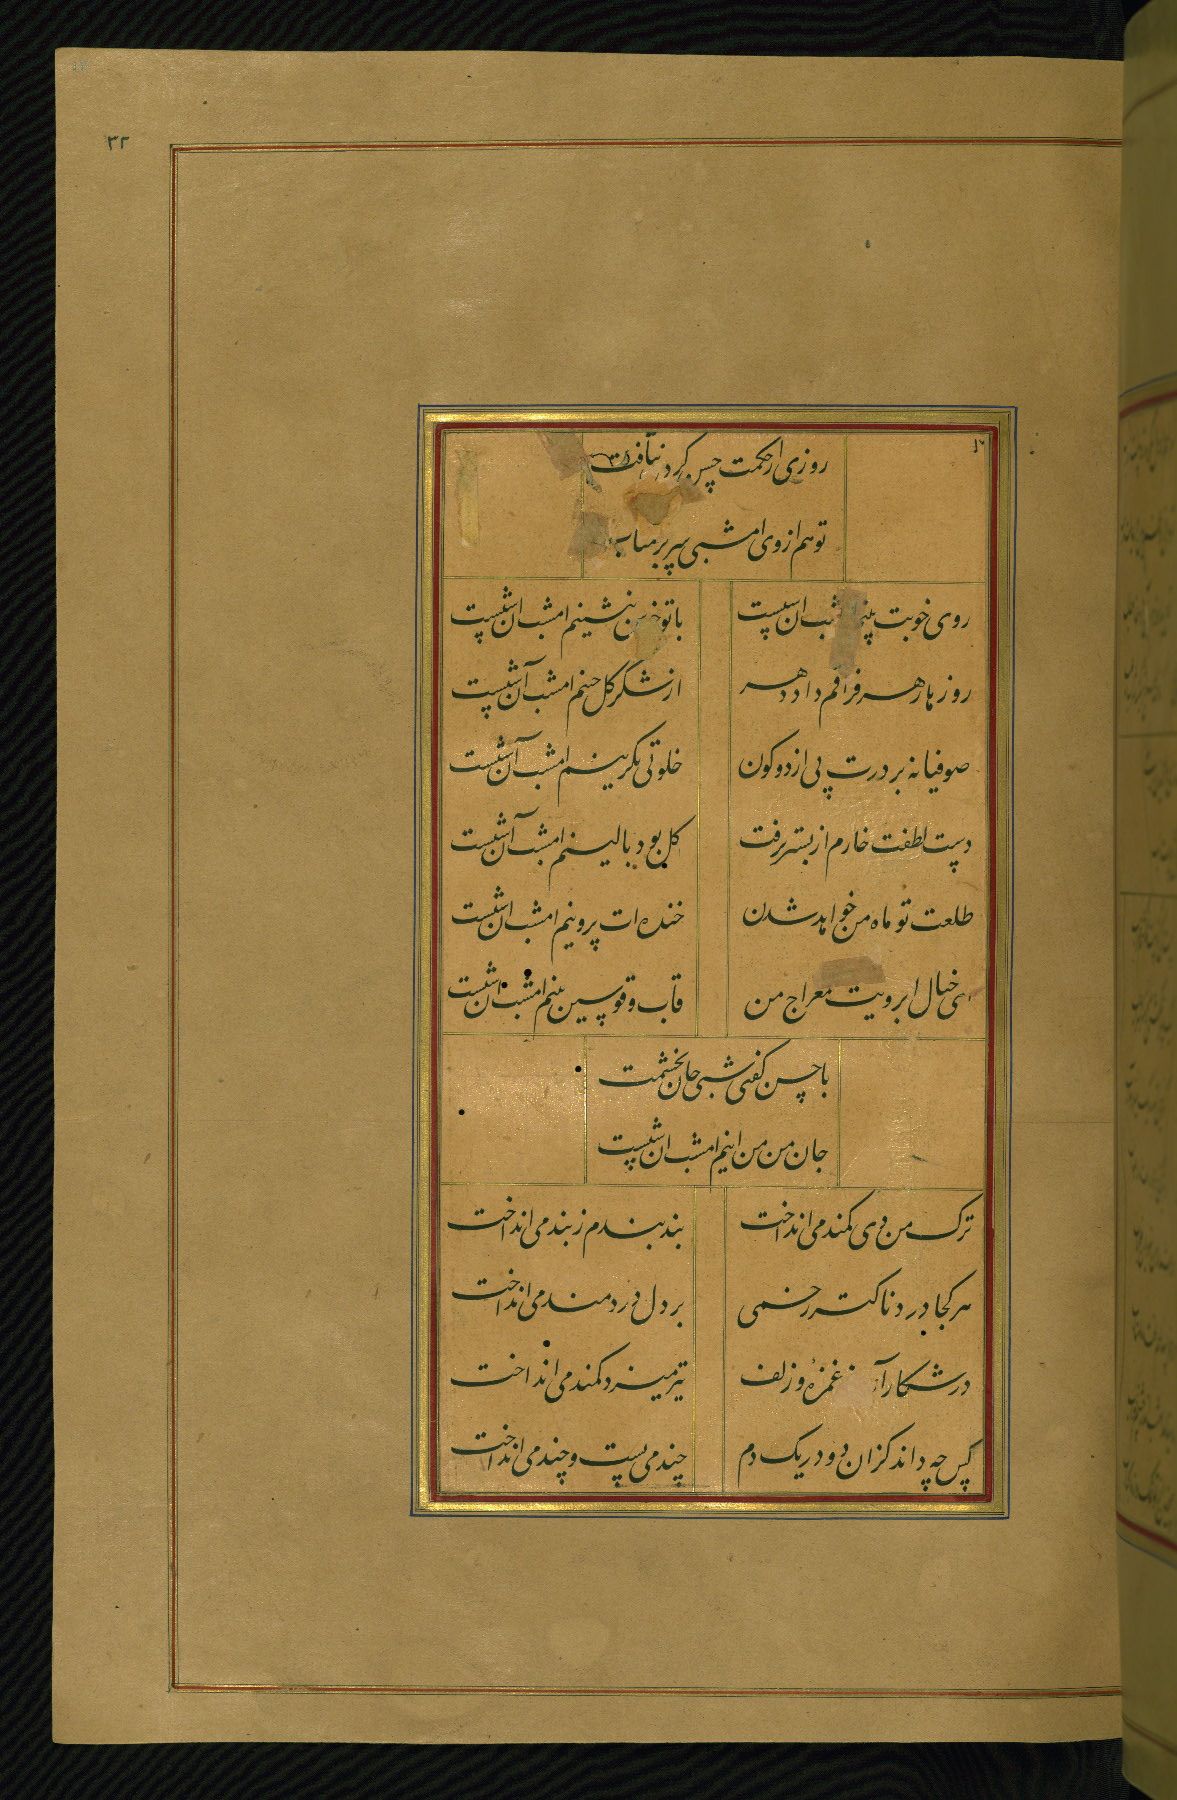 ۳۲
روزی از حکمت حسن گرد نیافت
تو هم از وی امشبی سر بر متاب
روی خوبت بینم امشب آن شبست
با تو خوش بنشینم امشب آن شبست
روزها زهر فراقم داد دهر
از شکر گل چینم امشب آن شبست
صوفیانه بر درت پی از دو کون
خلوتی بگزینم امشب آن شبست
دست لطفت خارم از بستر برفت
گل بود بالینم امشب آن شبست
طلعت تو ماه من خواهد شدن
خنده ات پروینم امشب آن شبست
ای خیال ابرویت معراج من
قاب و قوسین بینم امشب آن شبست
با حسن گفتی شبی جان بخشمت
جان من من اینم امشب آن شبست
ترک من دی کمند می انداخت
بند بندم ز بند می انداخت
هر کجا دردناکتر زخمی
بر دل دردمند می انداخت
در شکار آن غمزه و زلف
تیر میزد کمند می انداخت
پس چه داند کزان دو در یک دم
چند می بست و چند می انداخت